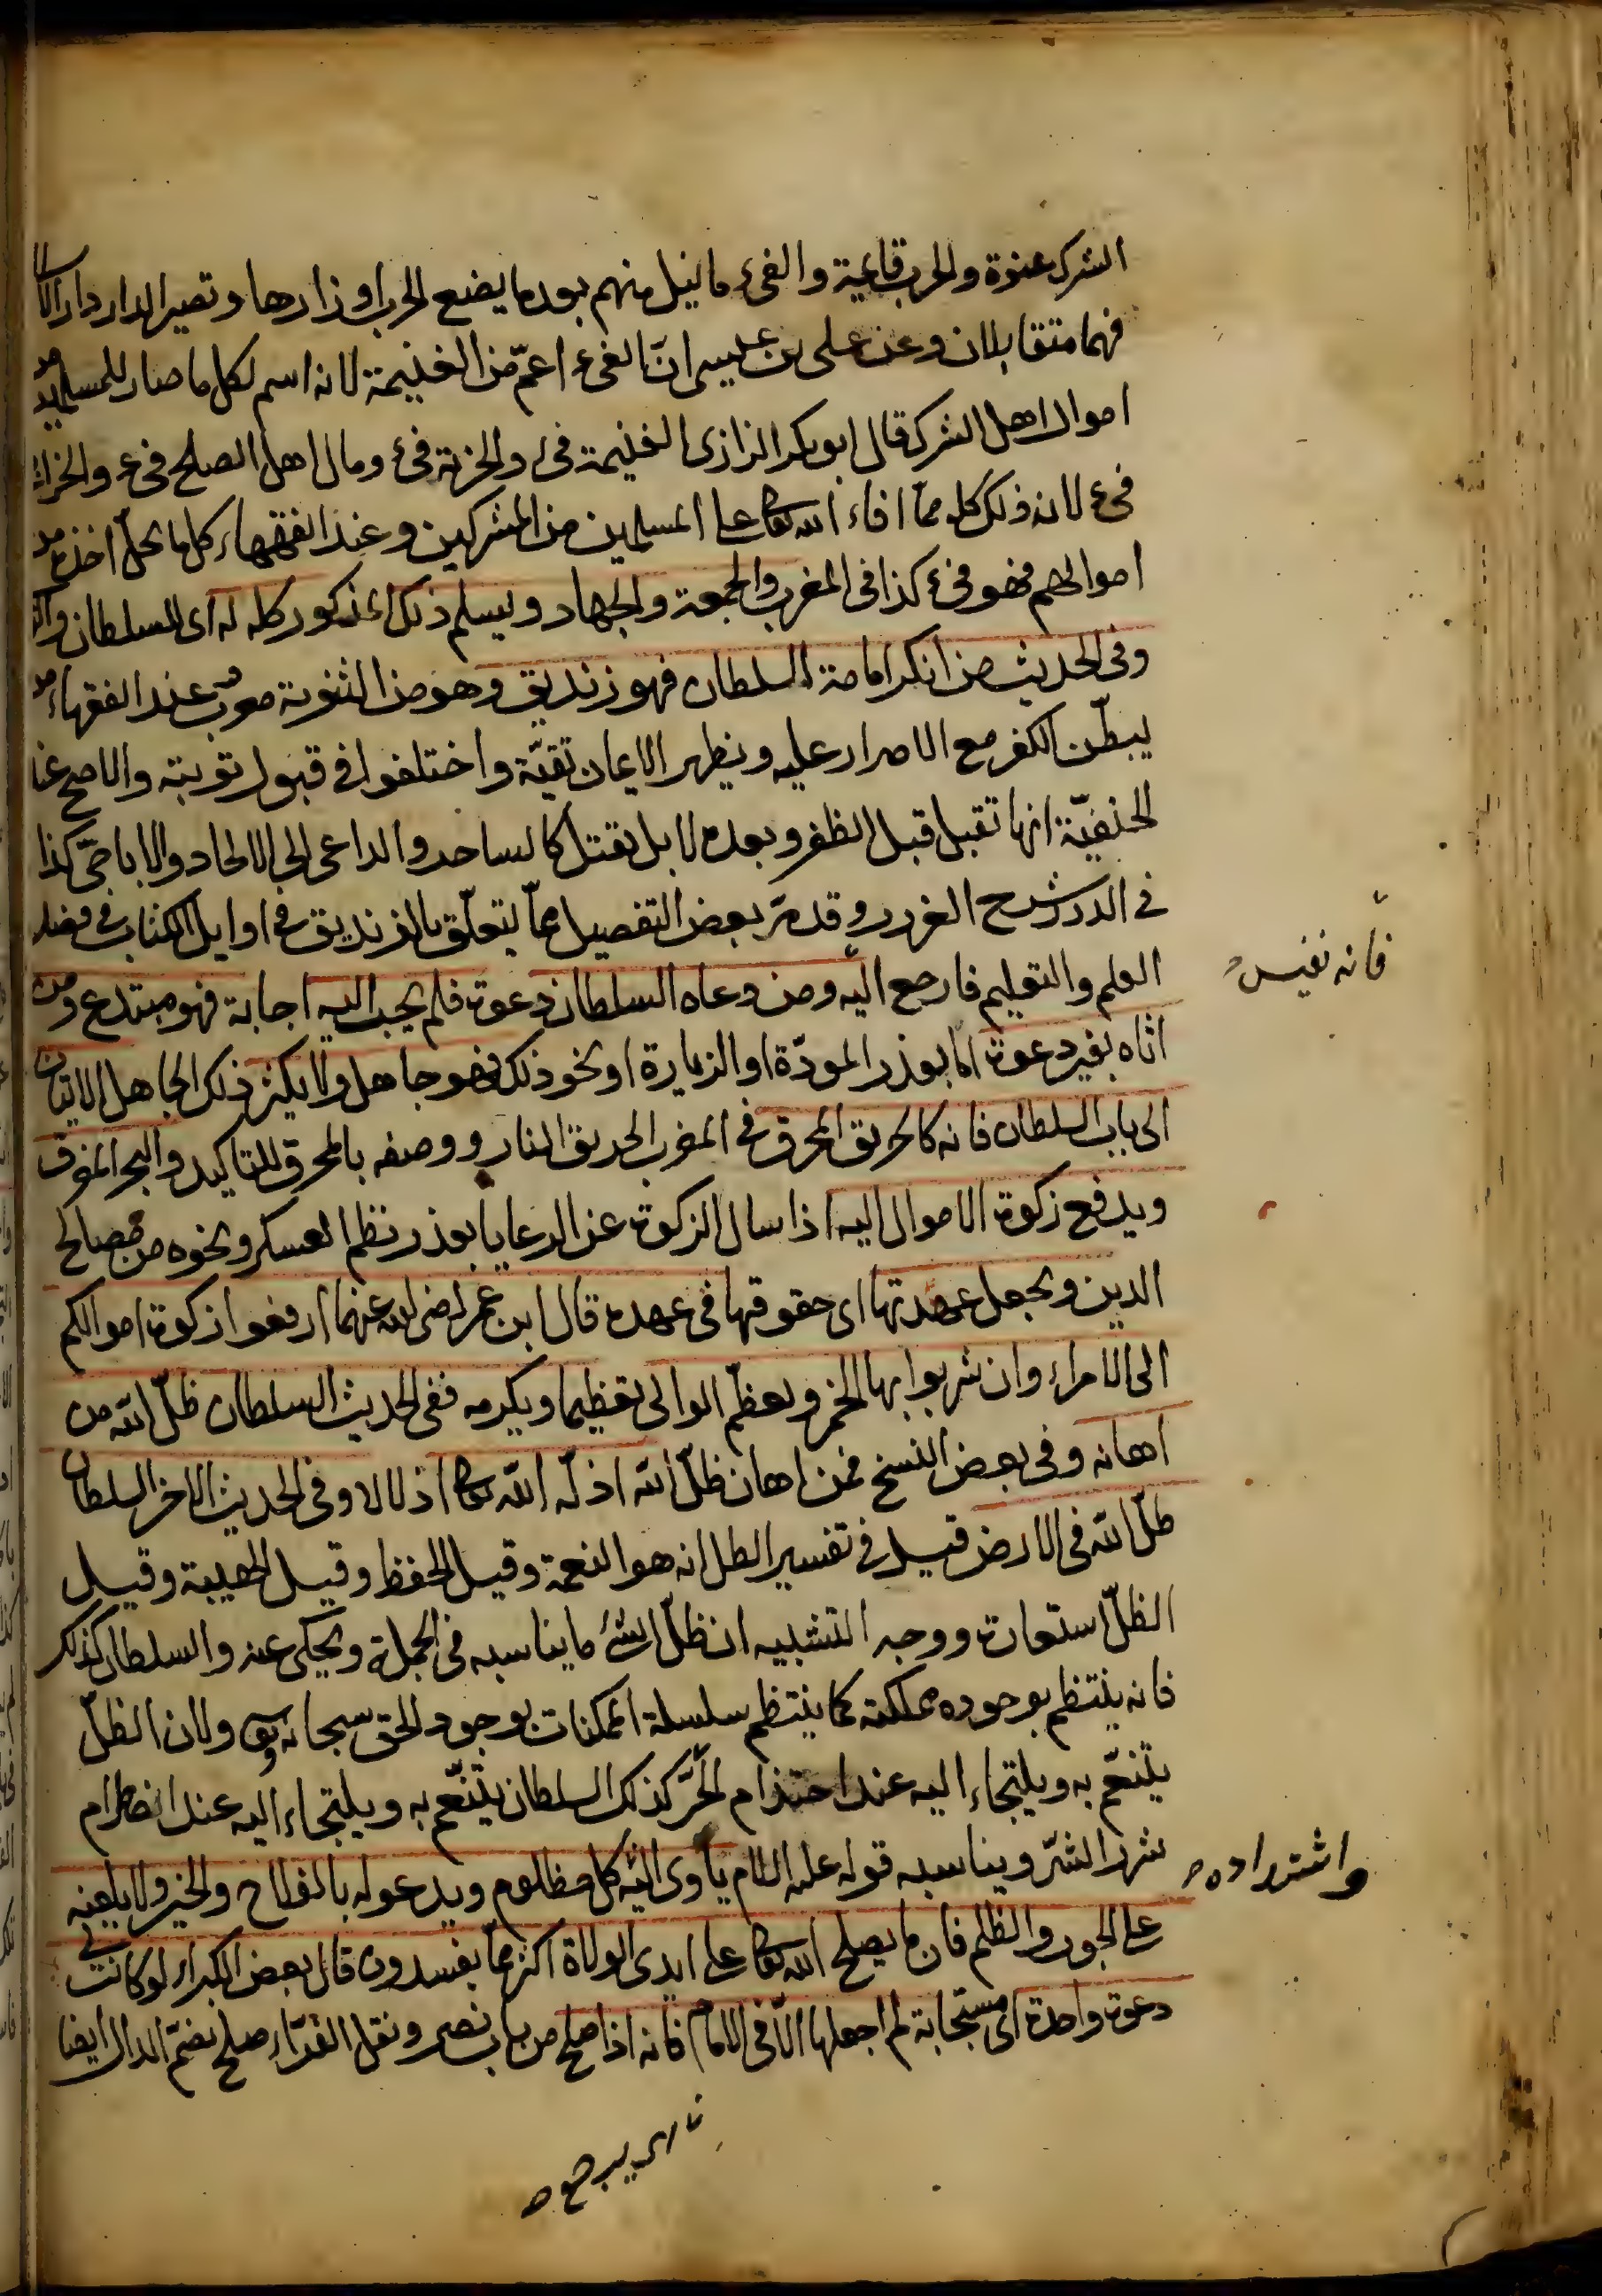 الشرك عنوة والحرب قائمة والفئ ما نيل منهم بعد ما يضع الحرب اوزارها وتصير الدار دار الاسلا
فهما متقابلان وعن على بن عيسى ان الفئ اعمّ من الغنيمة لانه اسم لكل ما صار للمسلمين من
اموال اهل الشرك قال ابو بكر الرازى الغنيمة فئ والجزية فئ ومال اهل الصلح فئ والخراج
فئ لانه ذلك كله مما افاء الله تعالى على المسلمين من المشركين وعند الفقهاء كل ما يحلّ اخذه من
اموالهم فهو فئ كذا فى المغرب والجمعة والجهاد ويسلم ذلك المذكور كله له اى للسلطان
وفى الحديث من انكر امامة السلطان فهو زنديق وهو من الثنوية معرّب عند الفقهاء من
يبطّن الكفر مع الاصرار عليه ويظهر الايمان تقيّة واختلفوا فى قبول توبته والاصح عند
الحنفيّة انها تقبل قبل الظفر وبعده لا بل يقتل كالساحر والداعى الى الالحاد والاباحىّ كذا
فى الدرر شرح الغرر وقد مرّ بعض التفصيل مما يتعلّق بالزنديق فى اوايل الكتاب فى فصل
فانه نفيس
العلم والتعليم فارجع اليه ومن دعاه السلطان دعوة فلم يجب اليه اجابة فهو مبتدع ومن
اتاه بغير دعوة اما بعذر المودّة او الزيارة او نحو ذلك فهو جاهل ولا يكثر ذلك الجاهل الاتيان
الى باب السلطان فانه كالحريق المحرق فى المغرب الحريق النار ووصفه بالمحرق للتاكيد والبحر المغرق
ويدفع زكوة الاموال اليه اذا سال الزكوة عن الرعايا بعذر نظم العسكر ونحوه من مصالح
الدين ويجعل عهدتها اى حقوقها فى عهده قال ابن عمر رضى الله عنهما ارفعوا زكوة اموالكم
الى الامراء وان شربوا بها الخمر ويعظّم الوالى تعظيما ويكرمه ففى الحديث السلطان ظلّ الله من
اهانه وفى بعض النسخ فمن اهان ظلّ الله اذلّه الله تعالى اذلالا وفى الحديث الاخر السلطان
ظلّ الله فى الارض قيل فى تفسير الظل انه هو النعمة وقيل الحفظ وقيل الهيبة وقيل
الظلّ استعارة ووجه التشبيه ان ظلّ الشئ ما يناسبه فى الجملة ويحكى عنه والسلطان كذلك
فانه ينتظم بوجوده مملكته كما ينتظم سلسلة الممكنات بوجود الحق سبحانه وتعالى ولان الظلّ
يتنعّم به ويلتجاء اليه عند احتدام الحَرّ كذلك السلطان يتنعّم به ويلتجاء اليه عند اضطرام
واشتداده
شرر الشرّ ويناسبه قوله عليه السلام يأوى اليه كل مظلوم ويدعو له بالفلاح والخير ولا يلعنه
على الجور والظلم فان ما يصلح الله تعالى على ايدى الولاة اكثر مما يفسدون قال بعض الكبراء لو كانت لى
دعوة واحدة اى مستجابة لم اجعلها الا فى الامام فانه اذا صلح من باب نصر ونقل الفرّاء صلح بضمّ الدال ايضا